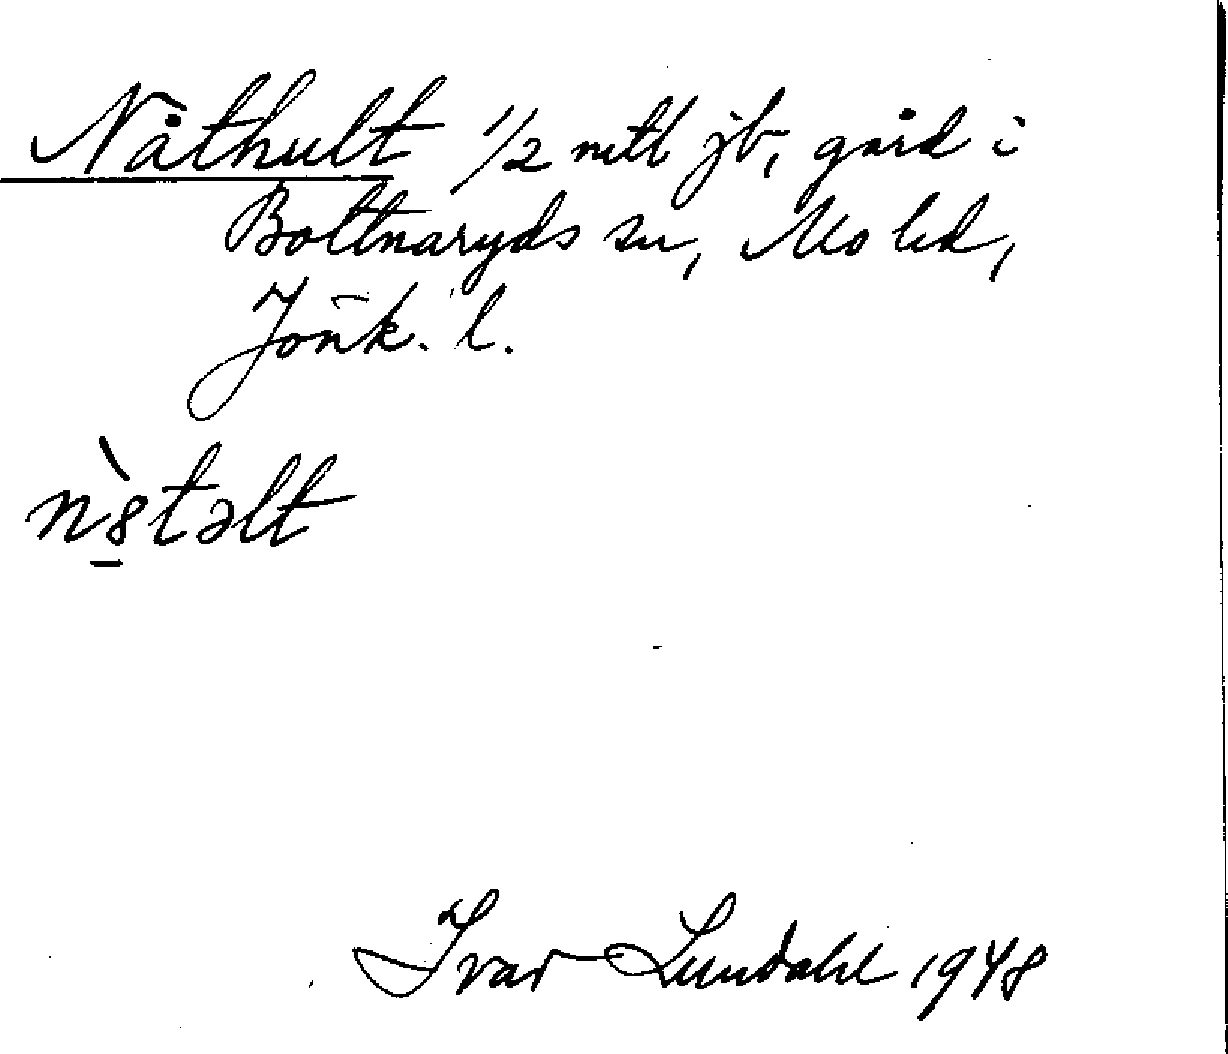 Nåthult 1/2 mtl jb, gård i
Bottnaryds sn, Mo hd,
Jönk. l.
n8̲̀təlt
Ivar Lundahl 1948